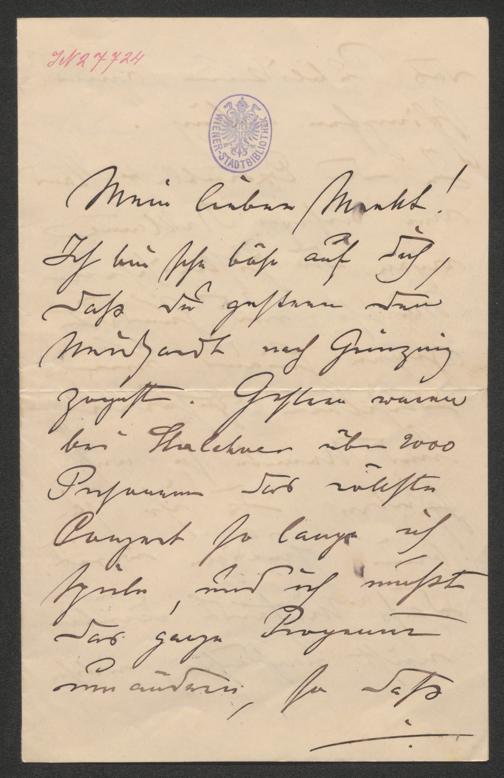 JN 27724
WIENER-STADTBIBLIOTHEK
Mein lieber !
Ich bin sehr böse auf dich,
daß du gestern den
nach Grinzing
zogst. Gestern waren
bei Stalehner über 2000
Personen das
Conzert so lange ich
spiele, und ich mußt
das ganze Programm
umändern, so daß